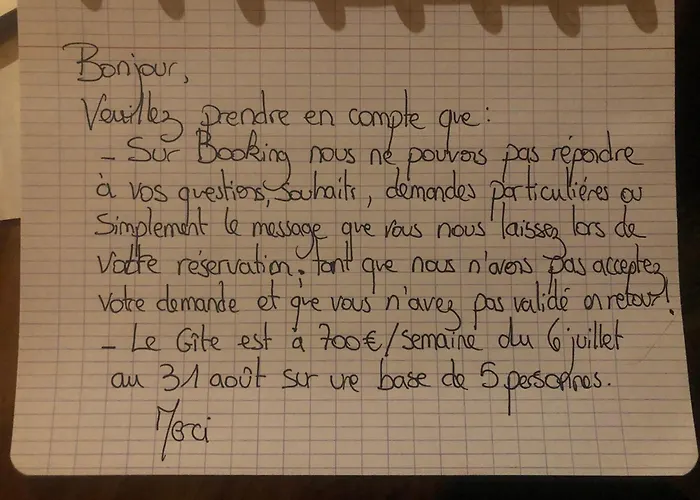 Bonjour,
Veuillez prendre en compte que :
- Sur Booking nous ne pouvons pas répondre
à vos questions, souhaits, demandes particulières ou
simplement le message que vous nous laissez lors de
votre réservation; tant que nous n'avons pas acceptez
votre demande et que vous n'avez pas validé en retour!
- Le Gîte est à 700€/semaine du 6 juillet
au 31 août sur une base de 5 personnes.
Merci